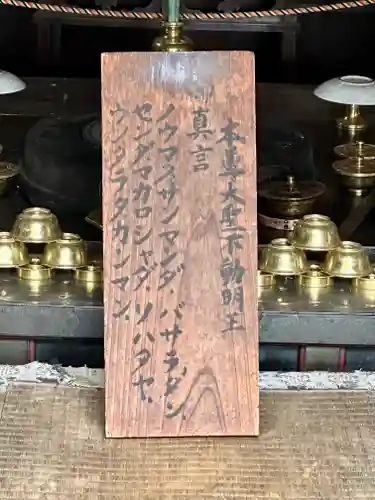 本尊大聖不動明王
真言
ノウマスサンマンダ、バサラ、ダン
センダマカロシャダ、ソハタヤ、
ウンタラタカンマン、